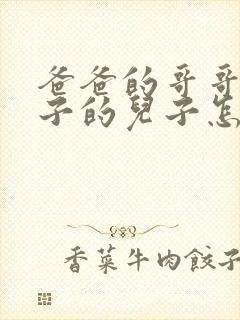 爸爸的哥哥
子的兒子怎
香菜牛肉餃子